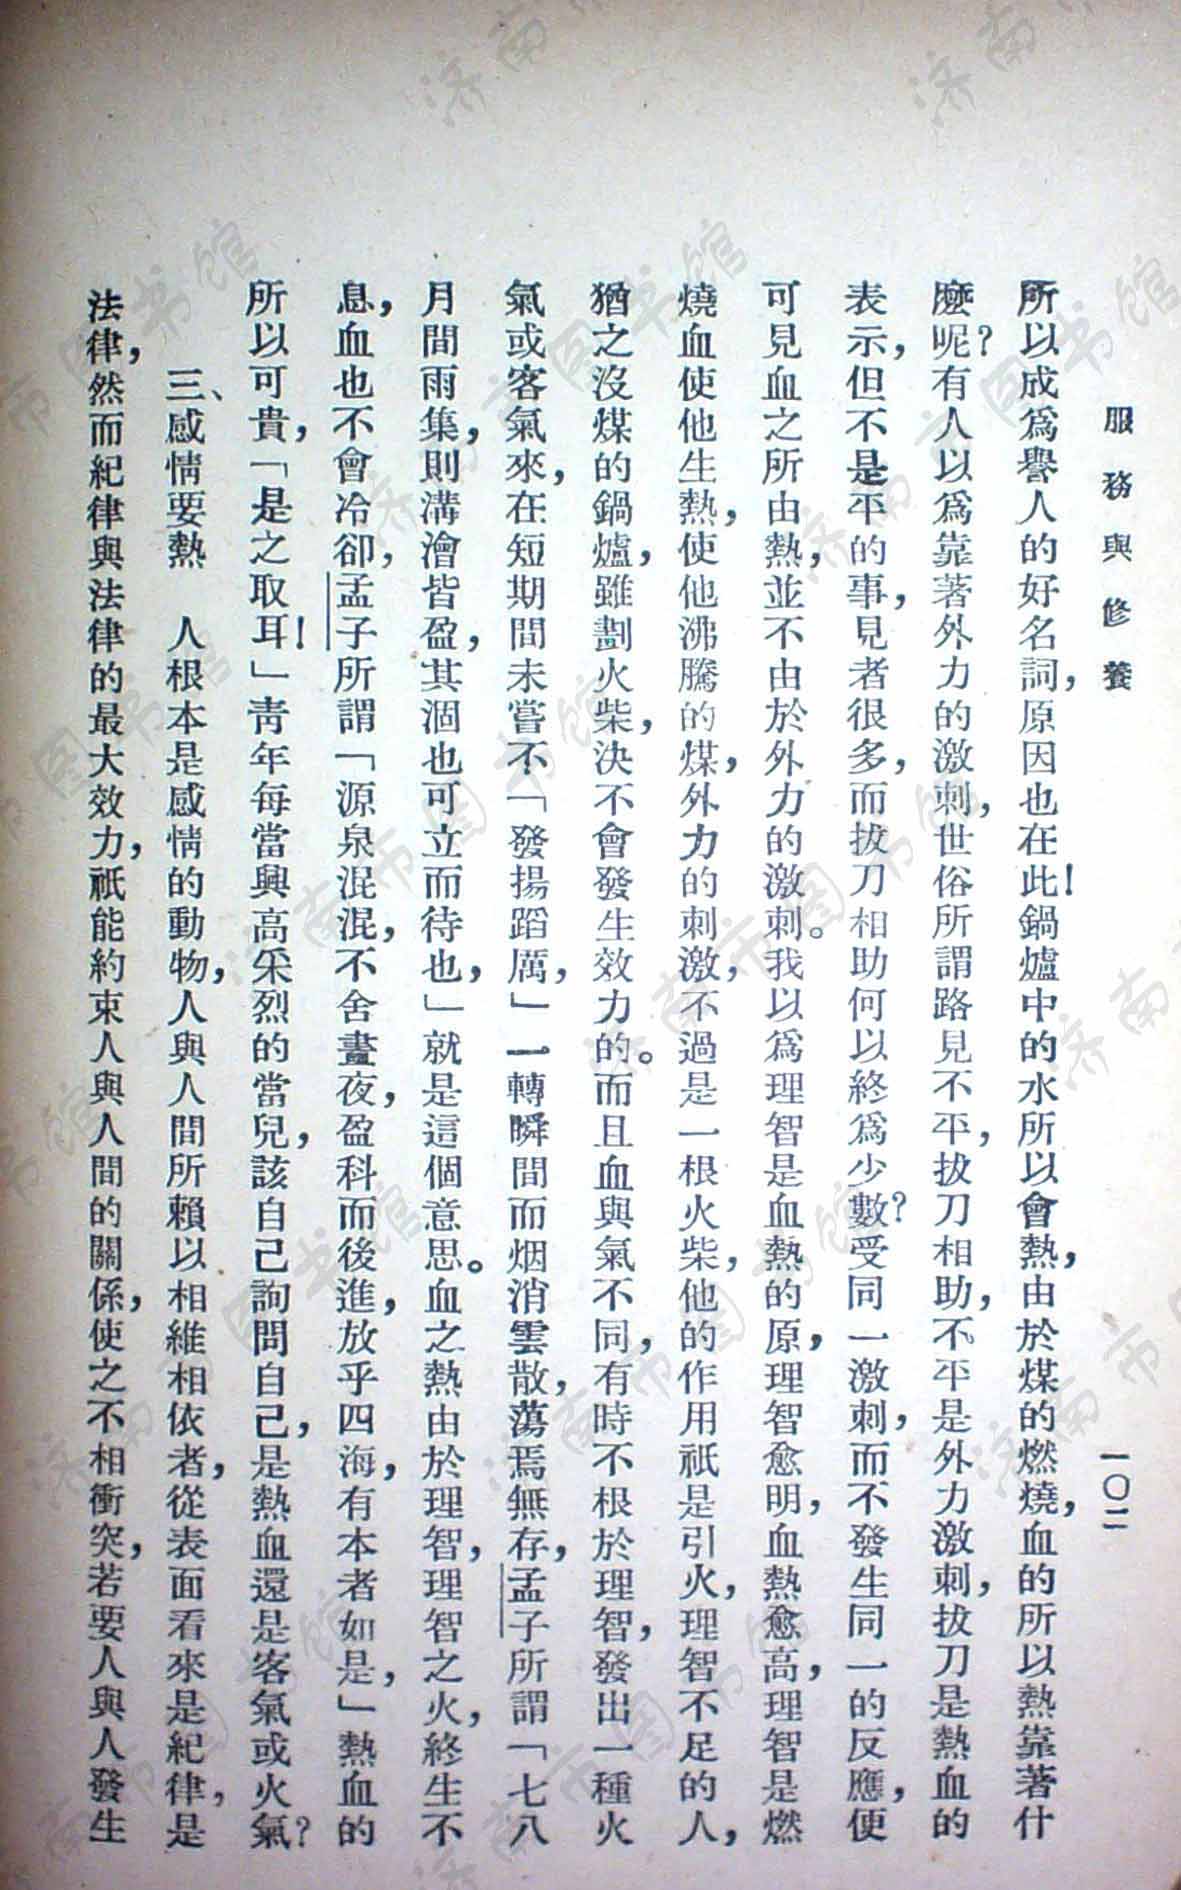 服務與修養
一〇二
所以成爲譽人的好名詞，原因也在此！鍋爐中的水所以會熱，由於煤的燃燒，血的所以熱靠著什
麼呢？有人以爲靠著外力的激刺，世俗所謂路見不平，拔刀相助，不平是外力激刺，拔刀是熱血的
表示，但不是平的事，見者很多，而拔刀相助何以終爲少數？受同一激刺，而不發生同一的反應，便
可見血之所由熱，並不由於外力的激刺。我以爲理智是血熱的原，理智愈明，血熱愈高，理智是燃
燒血使他生熱，使他沸騰的煤，外力的刺激，不過是一根火柴，他的作用祇是引火，理智不足的人，
猶之沒煤的鍋爐，雖劃火柴，決不會發生效力的。而且血與氣不同，有時不根於理智，發出一種火
氣或客氣來，在短期間未嘗不「發揚蹈厲，」一轉瞬間而烟消雲散，蕩焉無存，孟子所謂「七八
月間雨集，則溝澮皆盈，其涸也可立而待也，」就是這個意思。血之熱由於理智，理智之火，終生不
息，血也不會冷卻，孟子所謂「源泉混混，不舍晝夜，盈科而後進，放乎四海，有本者如是，」熱血的
所以可貴，「是之取耳！」青年每當興高采烈的當兒，該自己詢問自己，是熱血還是客氣或火氣？
三、感情要熱　人根本是感情的動物，人與人間所賴以相維相依者，從表面看來是紀律，是
法律，然而紀律與法律的最大效力，祇能約束人與人間的關係，使之不相衝突，若要人與人發生
济南市图书馆